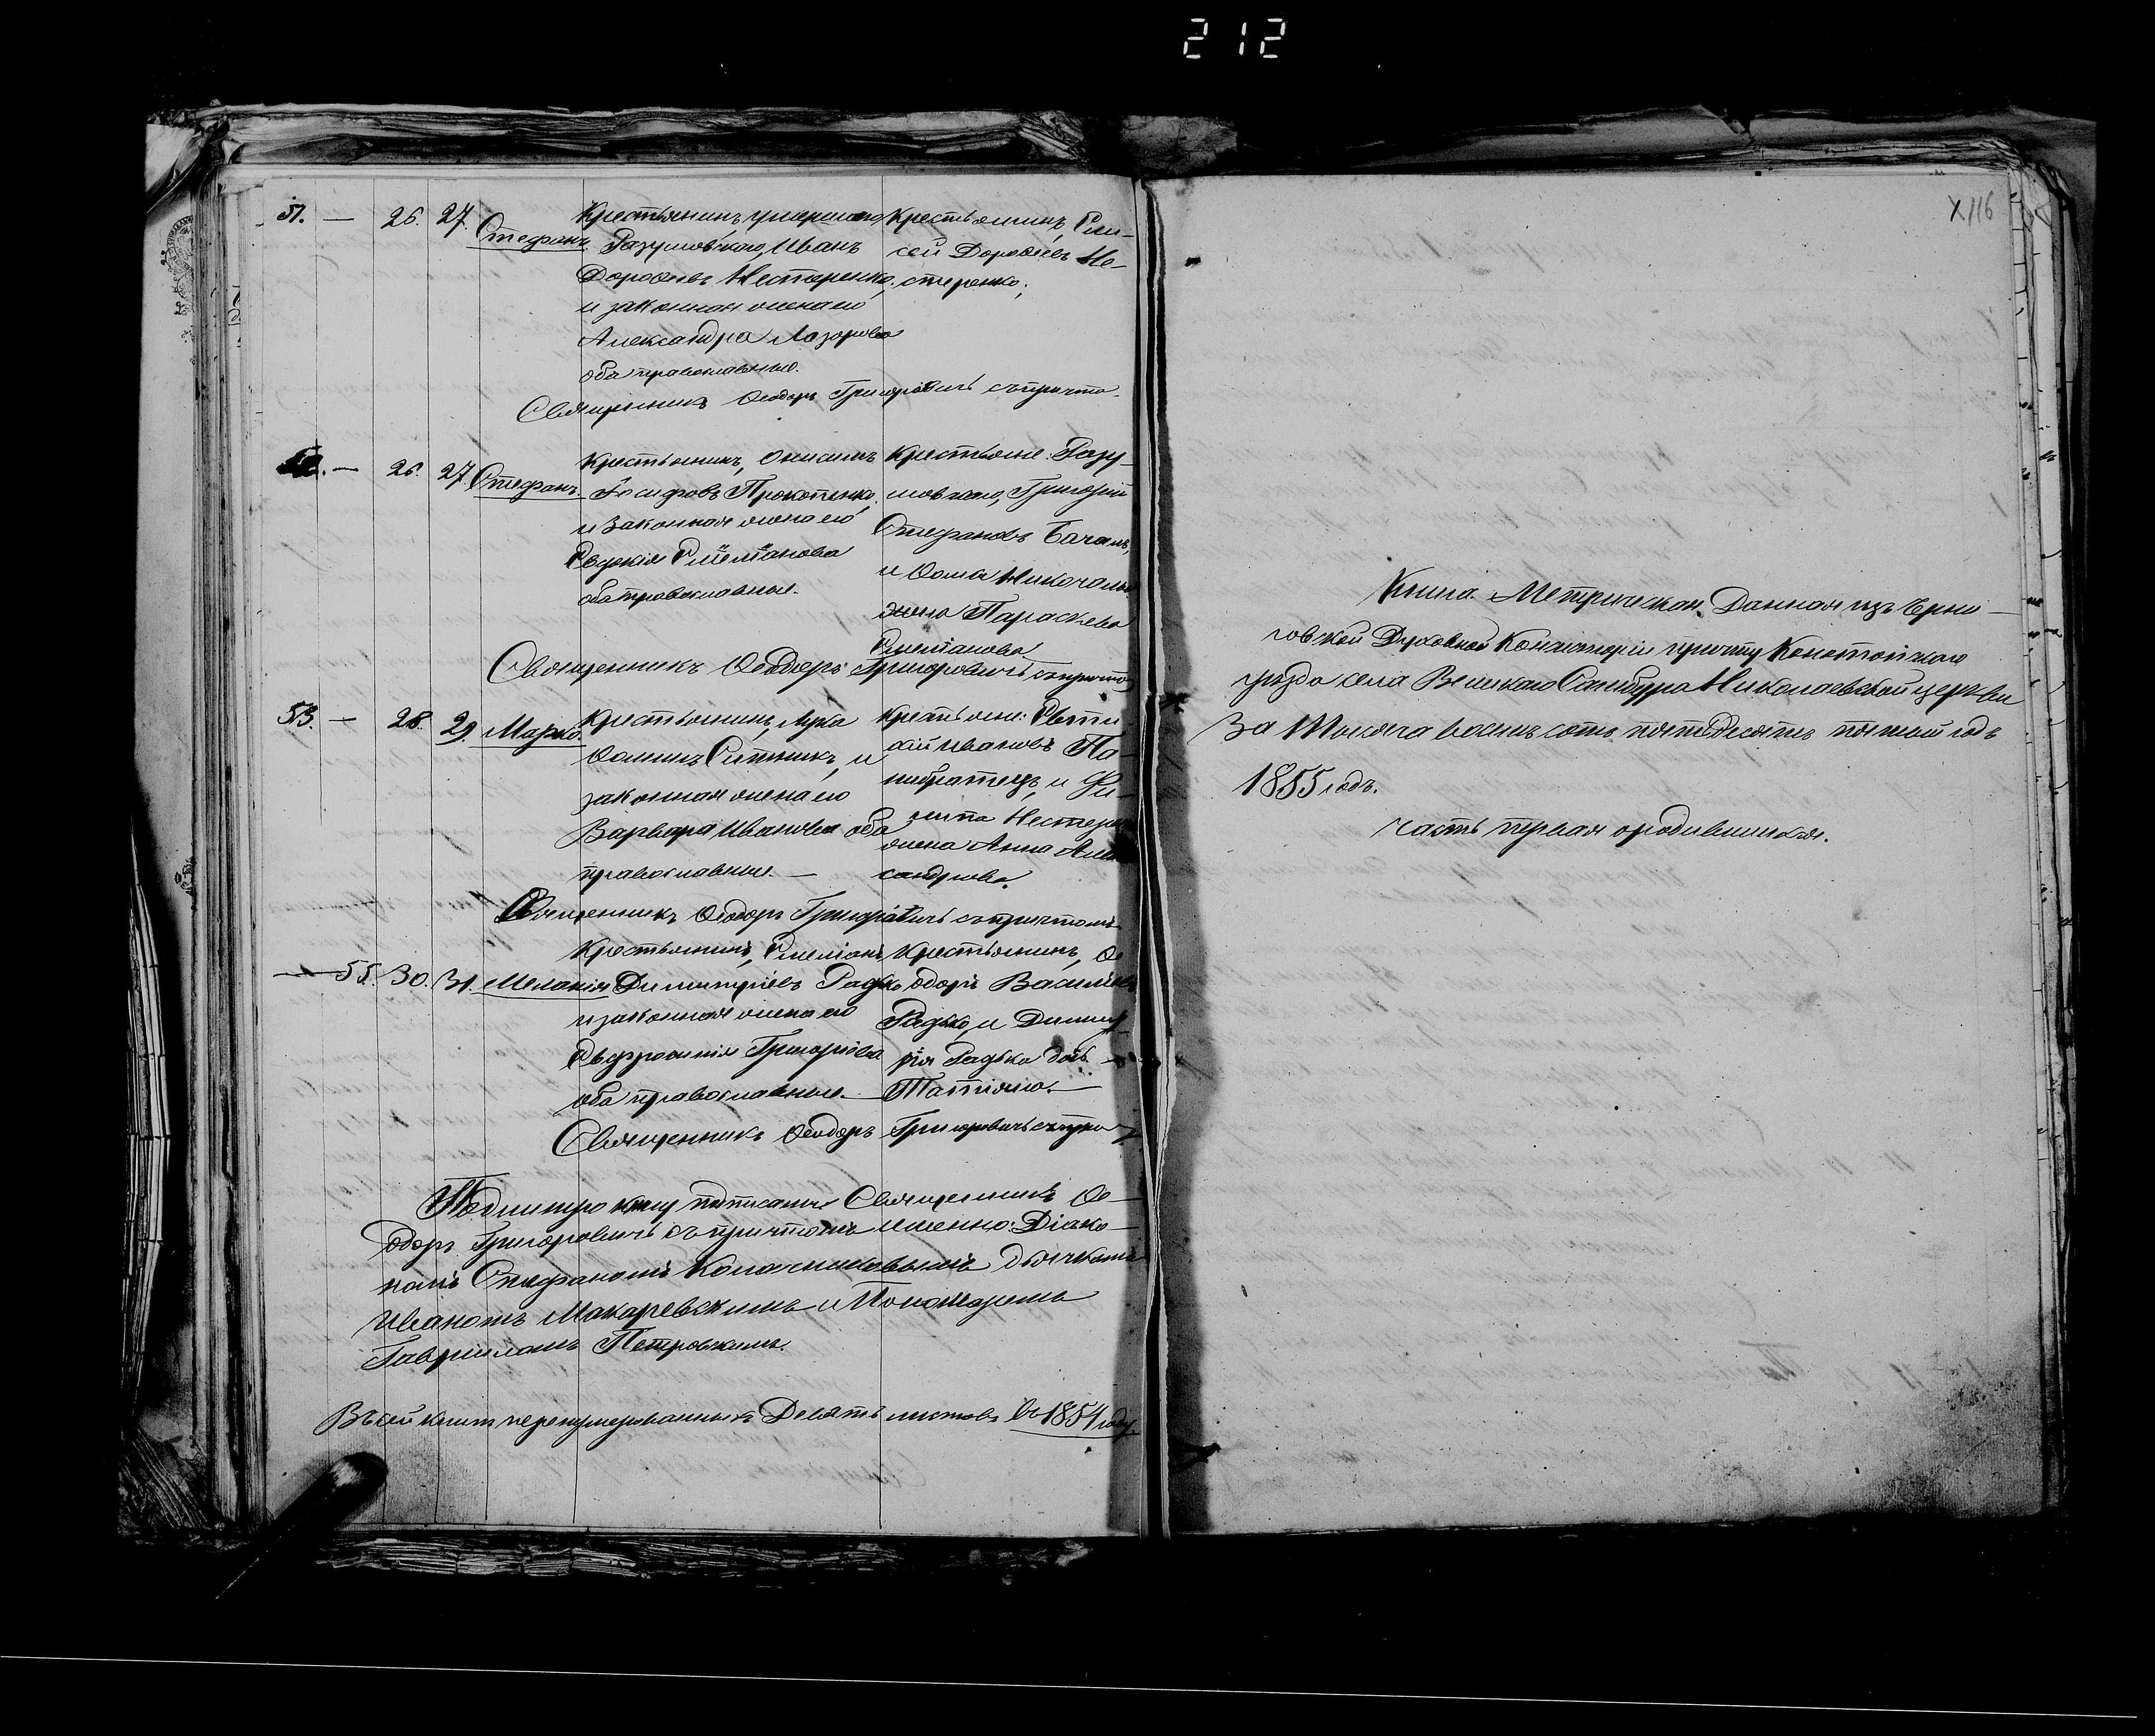 212
51. — 26. 27. Стефанъ
Крестьянинъ, умершаго
Разумовскаго, Иванъ
Дорофеевъ Нестеренко,
и законная жена его
Александра Лазорева
оба православные.
Крестьянинъ, Ели-
сей Дорофеевъ Не-
стеренко;
Священникъ Ѳеодоръ Григоровичъ съ причто.
— 26. 27. Стефанъ
Крестьянинъ, Онисимъ
Іосифовъ Прокопенко,
и законная жена его
Евдокія Емельянова
оба православные.
Крестьяне: Разу-
мовскаго, Григорій
Стефановъ Бачаль,
и Ѳома
жена Параскева
Емельянова
Священникъ Ѳеодоръ Григоровичъ съ причто
53. — 28. 29. Марко.
Крестьянинъ, Лука
Ѳоминъ Ситникъ, и
законная жена его
Варвара Иванова оба
православные. —
Крестьяне: Евти-
хій Ивановъ Па-
нибратецъ, и Фи-
липа Нестере
жена Анна Алек
сандрова.
Священникъ Ѳеодоръ Григоровичъ съ причтомъ
— 55. 30. 31. Меланія
Крестьянинъ, Емеліанъ
Димитріевъ Радько
и законная жена его
Евфросинія Григоріева
оба православные. —
Крестьянинъ, Ѳе
одоръ Василіевъ
Радько, и Димит-
рія Радька дочь
Татіана. —
Священникъ Ѳеодоръ Григоровичъ съ при
книгу подписалъ Священникъ Ѳе-
одоръ Григоровичъ съ причтомъ именно: Діако-
номъ Стефаномъ дьячкомъ
Иваномъ Макаревскимъ и Пономаремъ
Гавріиломъ Петровскимъ.
Въ сей книгѣ перенумерованныхъ Девять листовъ въ 1854 году.
X116
Книга Метрическая, Данная изъ Черни-
говской Духовной Консисторіи причту Конотопскаго
уѣзда села Великаго Самбура Николаевской церкви
За Тысяча восемь сотъ пятьдесятъ пятый годъ
1855 годъ.
Часть первая о родившихся.